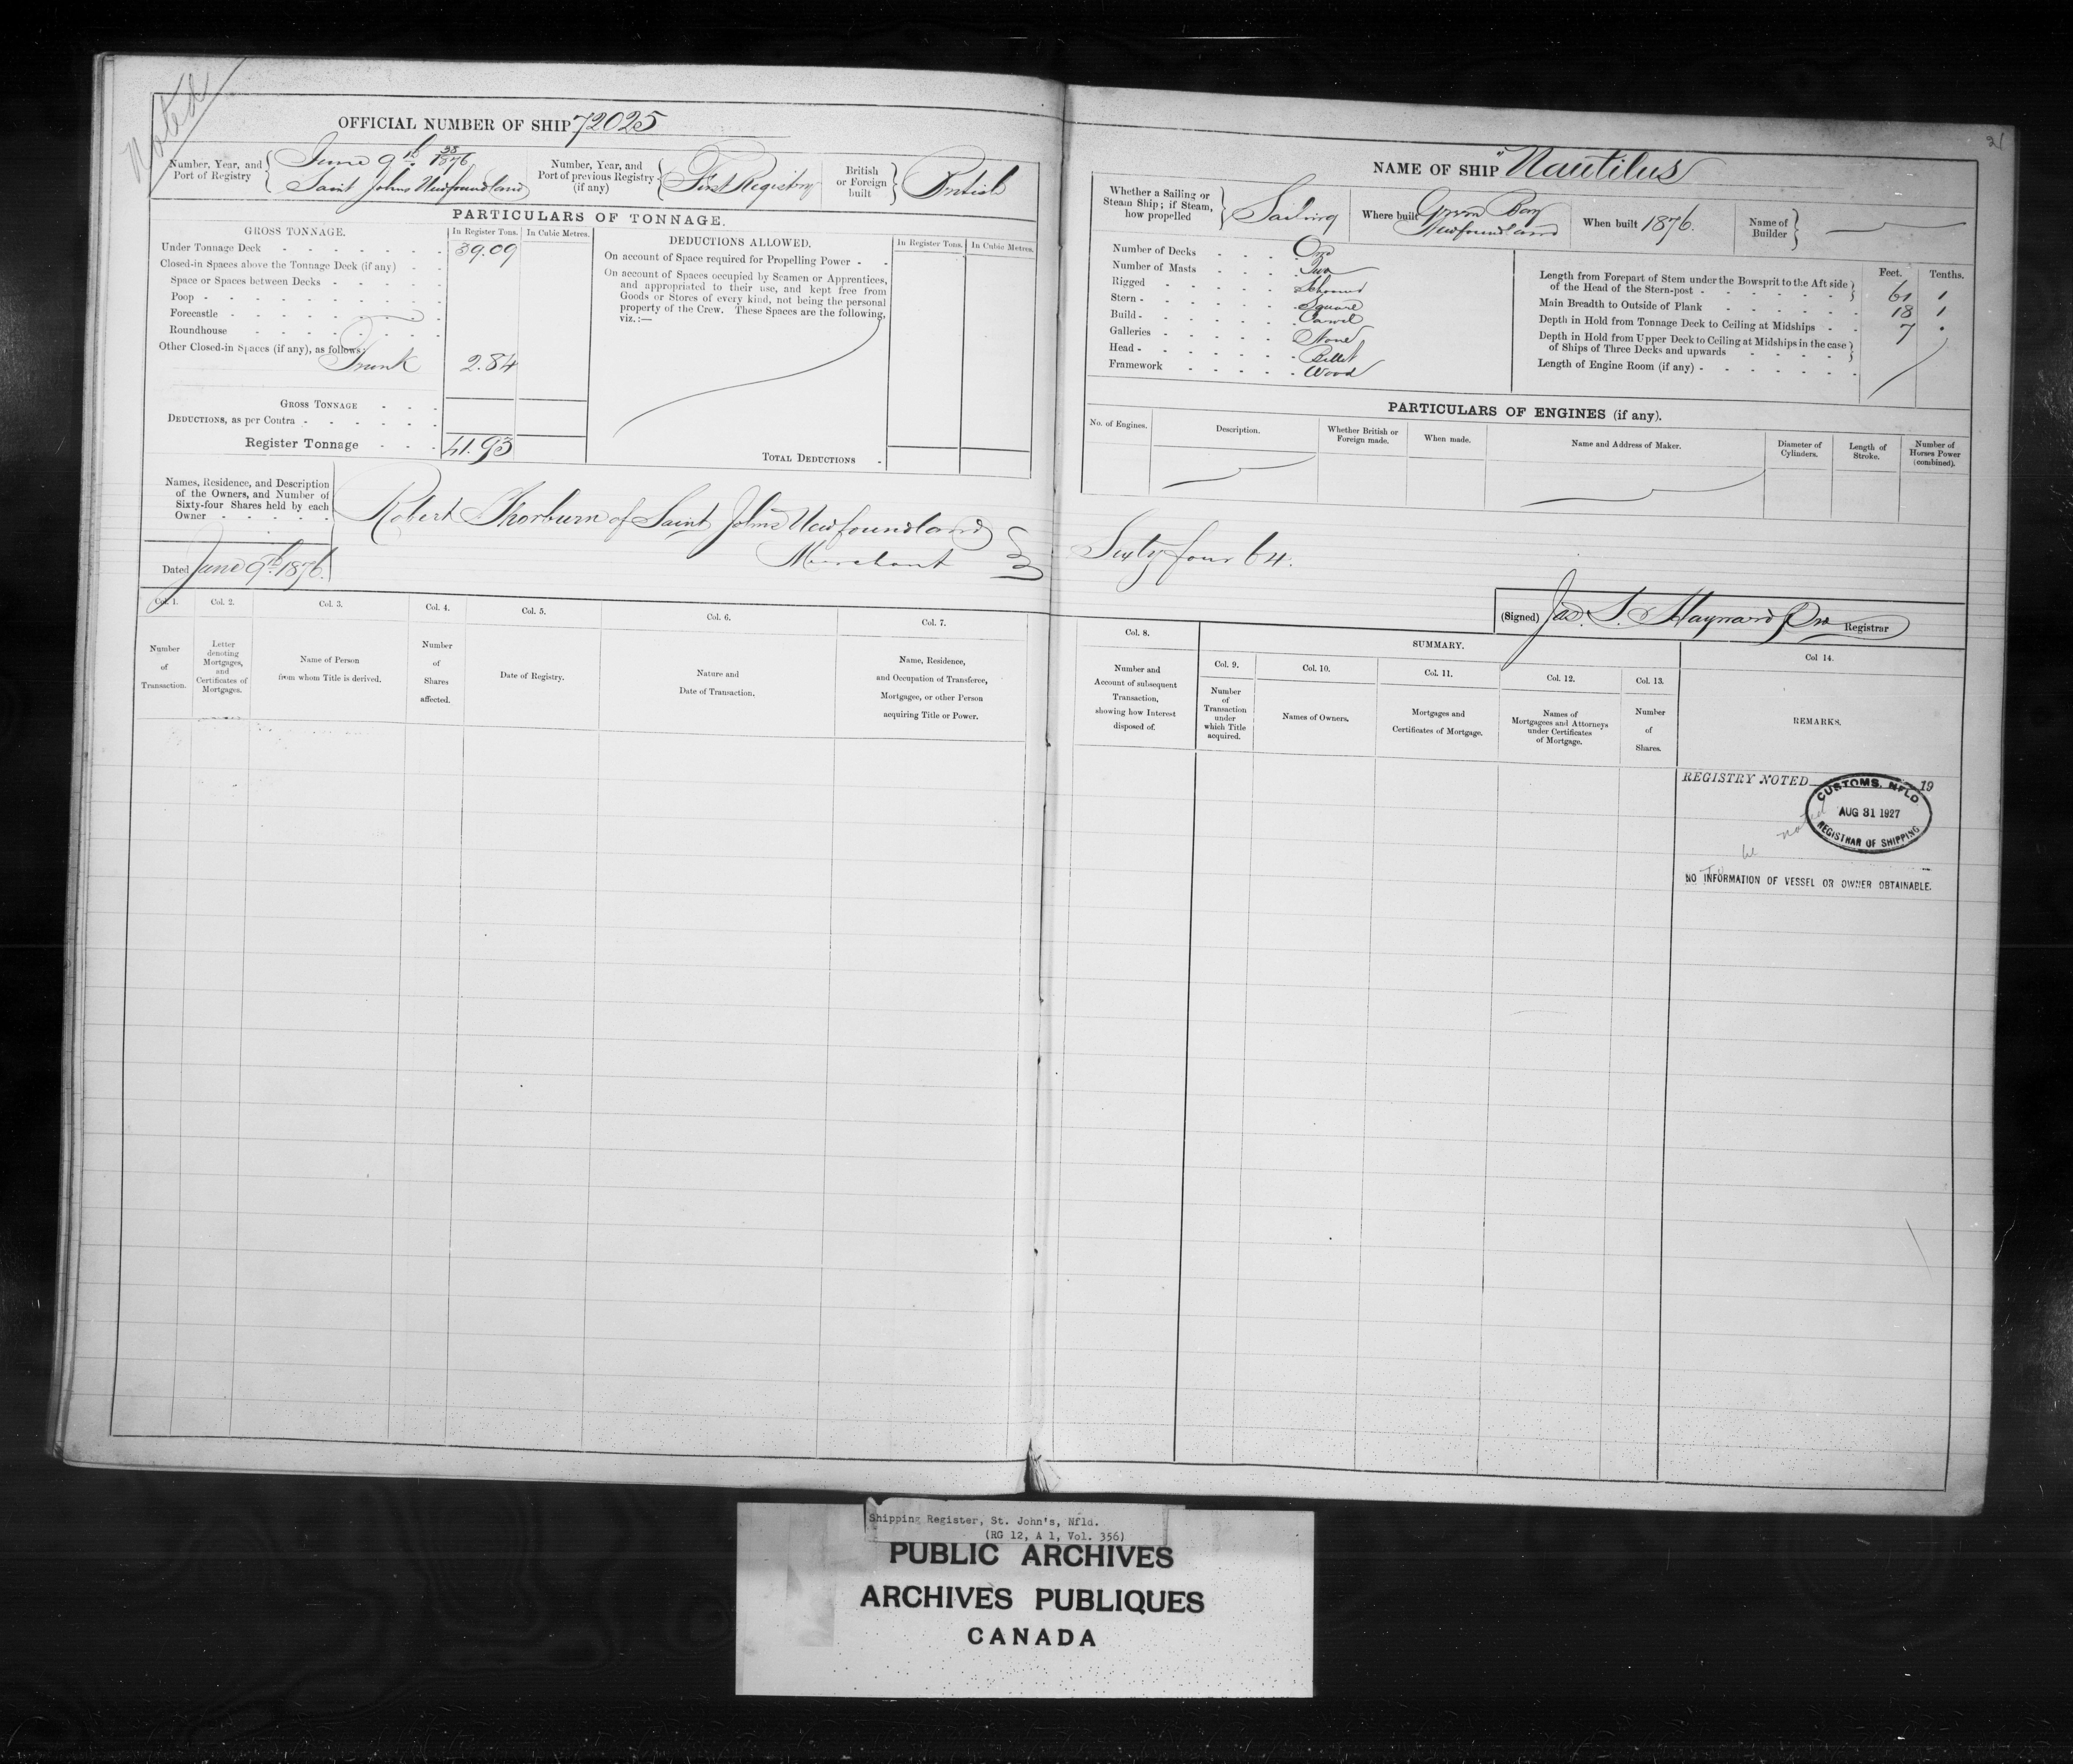 Noted
OFFICIAL NUMBER OF SHIP 72025
Number, Year, and Port of Registry
38
June 9th 1876
Saint Johns Newfoundland
Number, Year, and Port of previous Registry (if any)
First Registry
British or Foreign built
British
PARTICULARS OF TONNAGE.
GROSS TONNAGE.
In Register Tons.
In Cubic Metres.
Under Tonnage Deck 39.09
Closed-in Spaces above the Tonnage Deck (if any)
Space or Spaces between Decks
Poop
Forecastle
Roundhouse
Other Closed-in Spaces (if any), as follows:
Trunk 2.84
GROSS TONNAGE
DEDUCTIONS, as per Contra
Register Tonnage 41.93
DEDUCTIONS ALLOWED.
In Register Tons.
In Cubic Metres.
On account of Space required for Propelling Power
On account of Spaces occupied by Seamen or Apprentices,
and appropriated to their use, and kept free from
Goods or Stores of every kind, not being the personal
property of the Crew. These Spaces are the following,
viz.:—
TOTAL DEDUCTIONS
Names, Residence, and Description
of the Owners, and Number of
Sixty-four Shares held by each
Owner
Robert Thorburn of Saint John's Newfoundland
Merchant
Dated June 9th 1876.
Col. 1.
Number
of
Transaction.
Col. 2.
Letter
denoting
Mortgages,
and
Certificates of
Mortgages.
Col. 3.
Name of Person
from whom Title is derived.
Col. 4.
Number
of
Shares
affected.
Col. 5.
Date of Registry.
Col. 6.
Nature and
Date of Transaction.
Col. 7.
Name, Residence,
and Occupation of Transferee,
Mortgagee, or other Person
acquiring Title or Power.
21
NAME OF SHIP "Nautilus
Whether a Sailing or
Steam Ship; if Steam,
how propelled
Sailing
Where built
Green Bay
Newfoundland
When built 1876.
Name of
Builder
Number of Decks One
Number of Masts Two
Rigged Schooner
Stern Square
Build Carvel
Galleries None
Head Billet
Framework Wood
Feet. Tenths.
Length from Forepart of Stem under the Bowsprit to the Aft side
of the Head of the Stern-post 61 1
Main Breadth to Outside of Plank 18 1
Depth in Hold from Tonnage Deck to Ceiling at Midships 7 .
Depth in Hold from Upper Deck to Ceiling at Midships in the case
of Ships of Three Decks and upwards
Length of Engine Room (if any)
PARTICULARS OF ENGINES (if any).
No. of Engines.
Description.
Whether British or
Foreign made.
When made.
Name and Address of Maker.
Diameter of
Cylinders.
Length of
Stroke.
Number of
Horses Power
(combined).
Sixty four 64.
(Signed) Jas. S. Hayward Registrar
Col. 8.
Number and
Account of subsequent
Transaction,
showing how Interest
disposed of.
SUMMARY.
Col. 9.
Number
of
Transaction
under
which Title
acquired.
Col. 10.
Names of Owners.
Col. 11.
Mortgages and
Certificates of Mortgage.
Col. 12.
Names of
Mortgagees and Attorneys
under Certificates
of Mortgage.
Col. 13.
Number
of
Shares.
Col 14.
REMARKS.
REGISTRY NOTED 19
CUSTOMS, NFLD
AUG 31 1927
REGISTRAR OF SHIPPING
To be noted
NO INFORMATION OF VESSEL OR OWNER OBTAINABLE.
Shipping Register, St. John's, Nfld.
(RG 12, A 1, Vol. 356)
PUBLIC ARCHIVES
ARCHIVES PUBLIQUES
CANADA